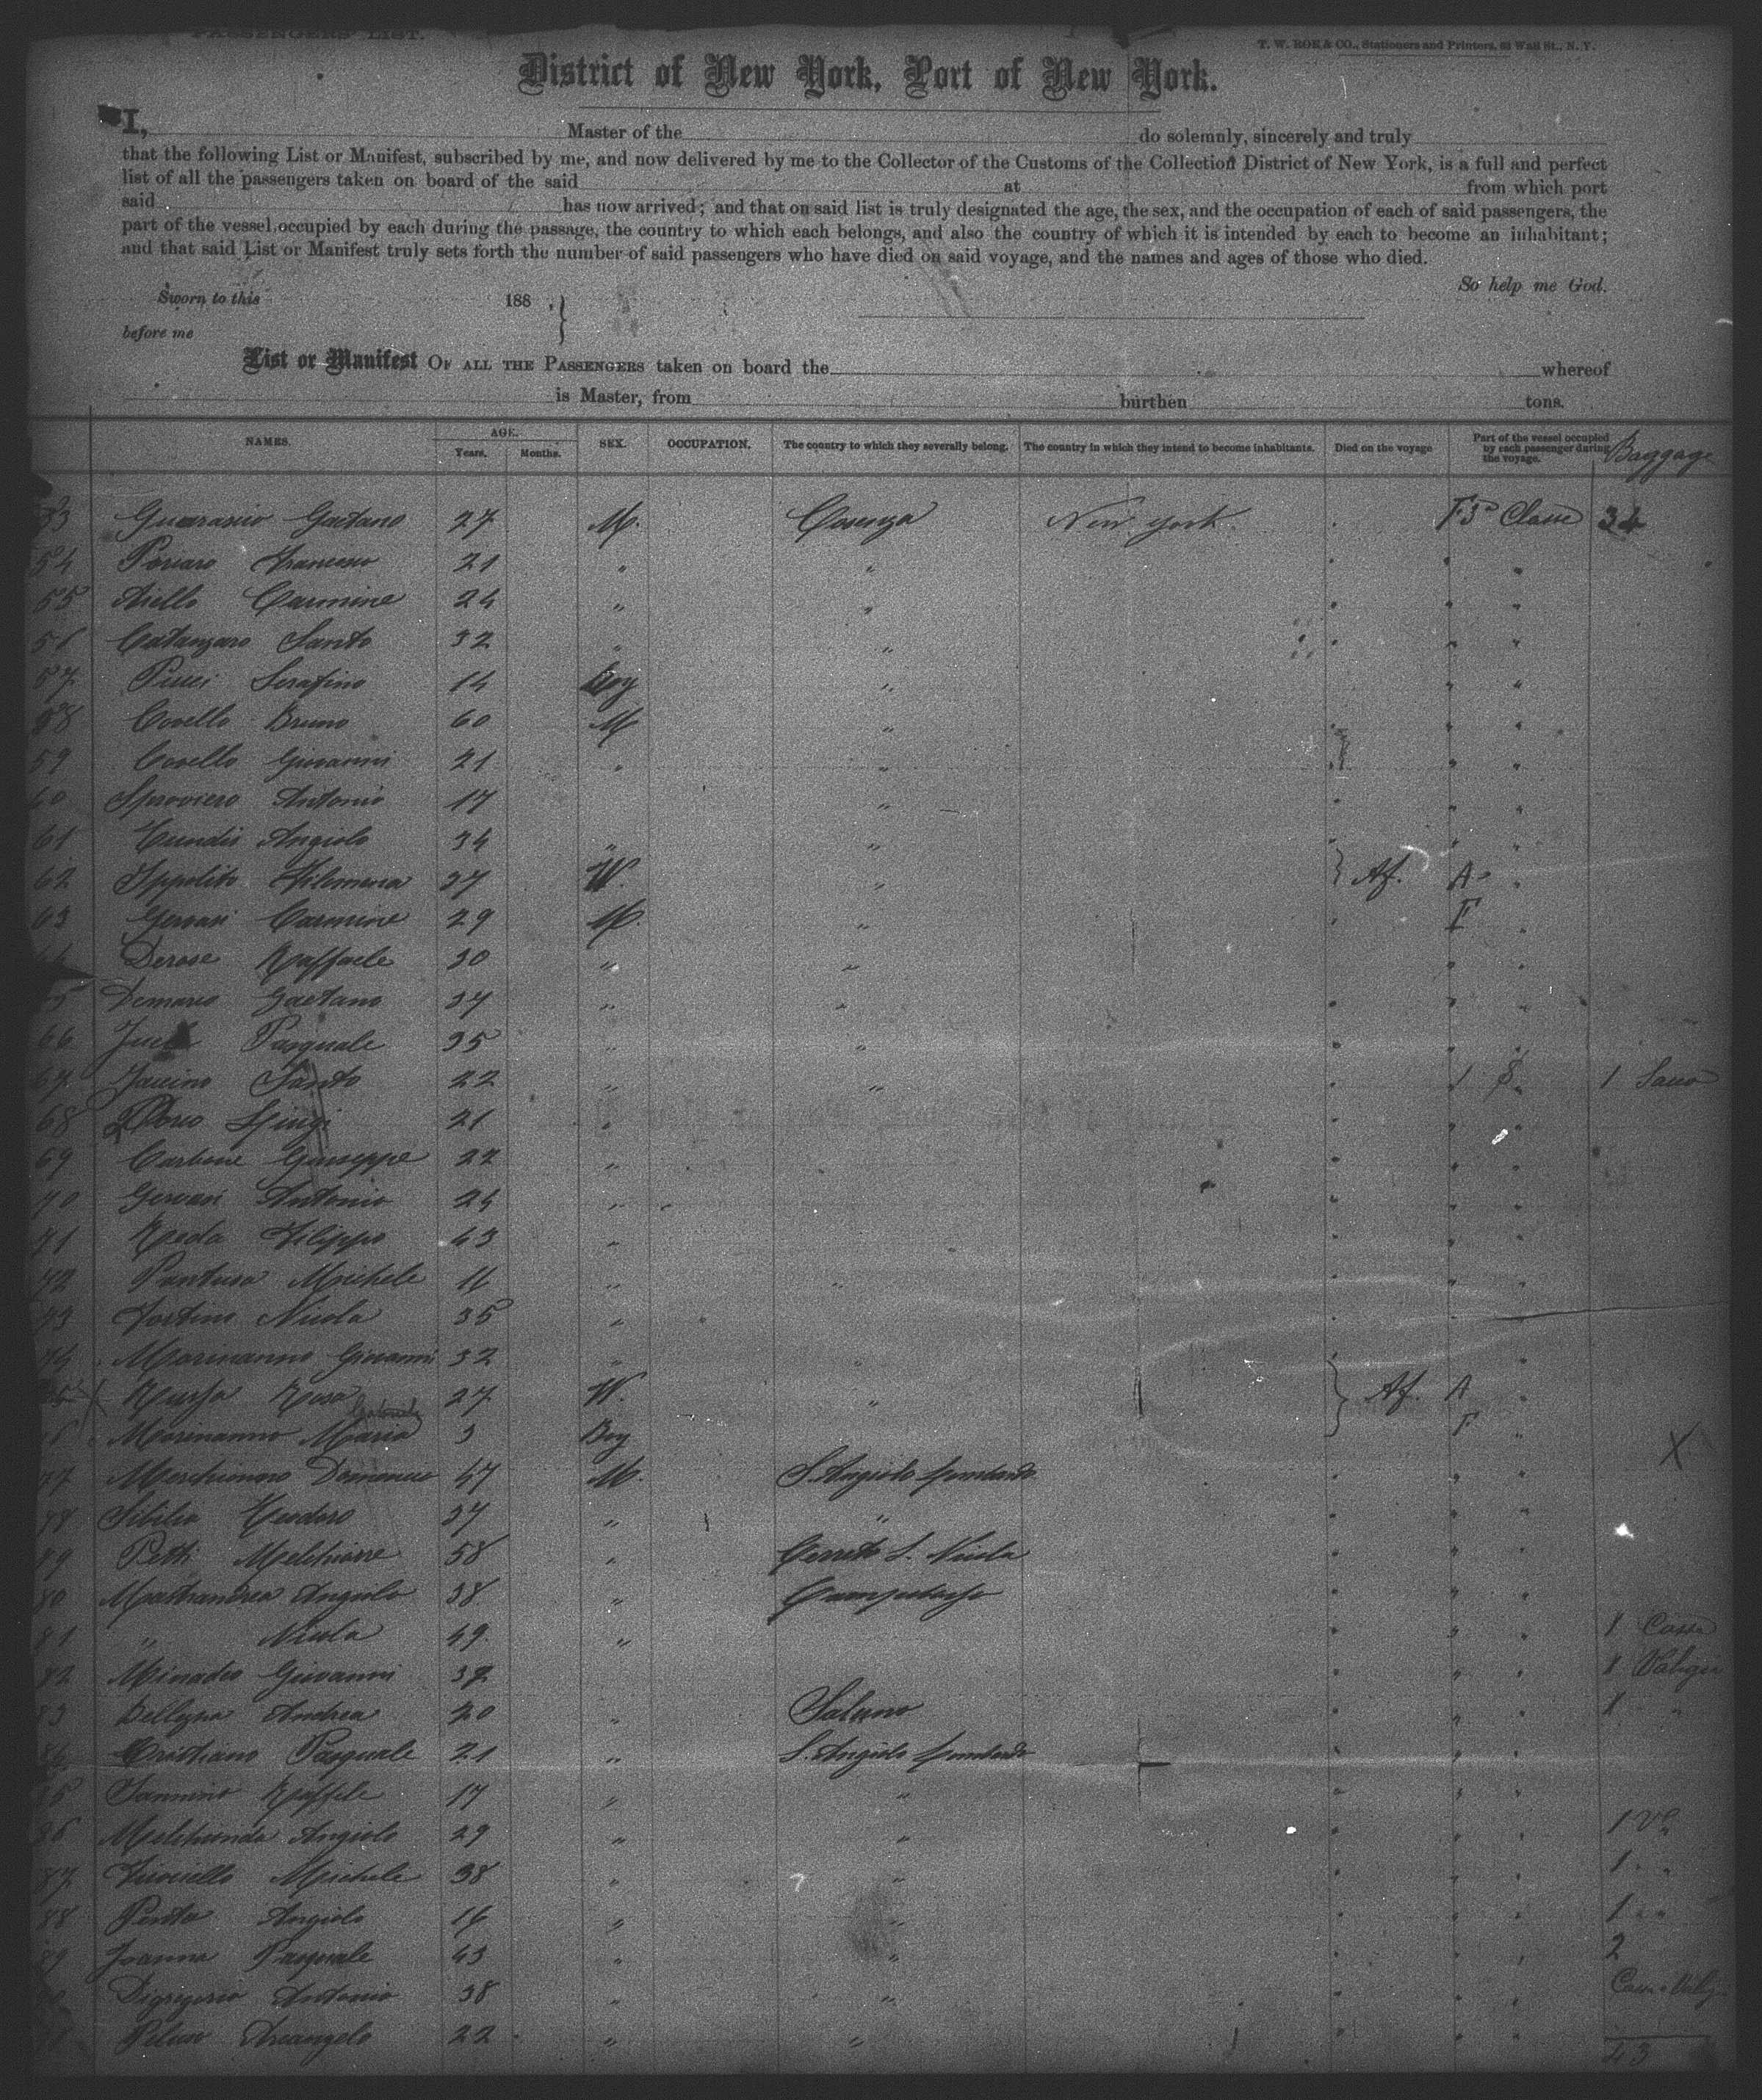 PASSENGERS' LIST.
T. W. ROE & CO., Stationers and Printers, 63 Wall St., N. Y.
District of New York, Port of New York.
I, Master of the do solemnly, sincerely and truly
that the following List or Manifest, subscribed by me, and now delivered by me to the Collector of the Customs of the Collection District of New York, is a full and perfect
list of all the passengers taken on board of the said at from which port
said has now arrived; and that on said list is truly designated the age, the sex, and the occupation of each of said passengers, the
part of the vessel occupied by each during the passage, the country to which each belongs, and also the country of which it is intended by each to become an inhabitant;
and that said List or Manifest truly sets forth the number of said passengers who have died on said voyage, and the names and ages of those who died.
So help me God.
Sworn to this 188 .
before me
List or Manifest OF ALL THE PASSENGERS taken on board the whereof
is Master, from burthen tons.
NAMES. AGE. Years. Months. SEX. OCCUPATION. The country to which they severally belong. The country in which they intend to become inhabitants. Died on the voyage Part of the vessel occupied by each passenger during the voyage. Baggage
53 Guarascio Gaetano 27 M. Cosenza New York F 3a Classe 34
54 Porcaro Francesco 21 " "
55 Aiello Carmine 24 " "
56 Catanzaro Santo 32 " "
57 Pucci Serafino 14 Boy "
58 Covello Bruno 60 M "
59 Covello Giovanni 21 " "
60 Sproviero Antonio 17 "
61 Angiolo 34 " "
62 Ippolito Filomena 37 W. " Af. A
63 Gervasi Carmine 29 M. " F
64 Derose Raffaele 30 " "
65 Demarco Gaetano 37 " "
66 Pasquale 35 " "
67 Iaccino Santo 22 " " 1 Sacco
68 Luigi 21 "
69 Carbone Giuseppe 22 "
70 Gervasi Antonio 24 "
71 Reda Filippo 43 "
72 Pantusa Michele 16 " "
73 Fortino Nicola 35 "
74 Marinanno Giovanni 32 " "
75 Russo Rosa 27 W. " Af. A
76 Marinanno Maria 3 Boy F
77 Marchionno Domenico 47 M. S. Angiolo Lombardo
78 Sibilia Teodoro 37 " "
79 Petti Melchiorre 58 " Cerreto S. Nicola
80 Mastrandrea Angiolo 38 " Campobasso
81 " Nicola 49 " 1 Cassa
82 Minadeo Giovanni 37 1 Valigia
83 Andrea 20 " Salerno 1 "
84 Cristiano Pasquale 21 " S. Angiolo Lombardo
85 Iannino Raffele 17 " "
86 Angiolo 29 " " 1 Va
87 Michele 38 " " 1 "
88 Pinto Angiolo 16 " " 1 " "
89 Ioanna Pasquale 43 " " 2
90 Digregorio Antonio 38 " "
91 Peluso Arcangelo 22 " "
43